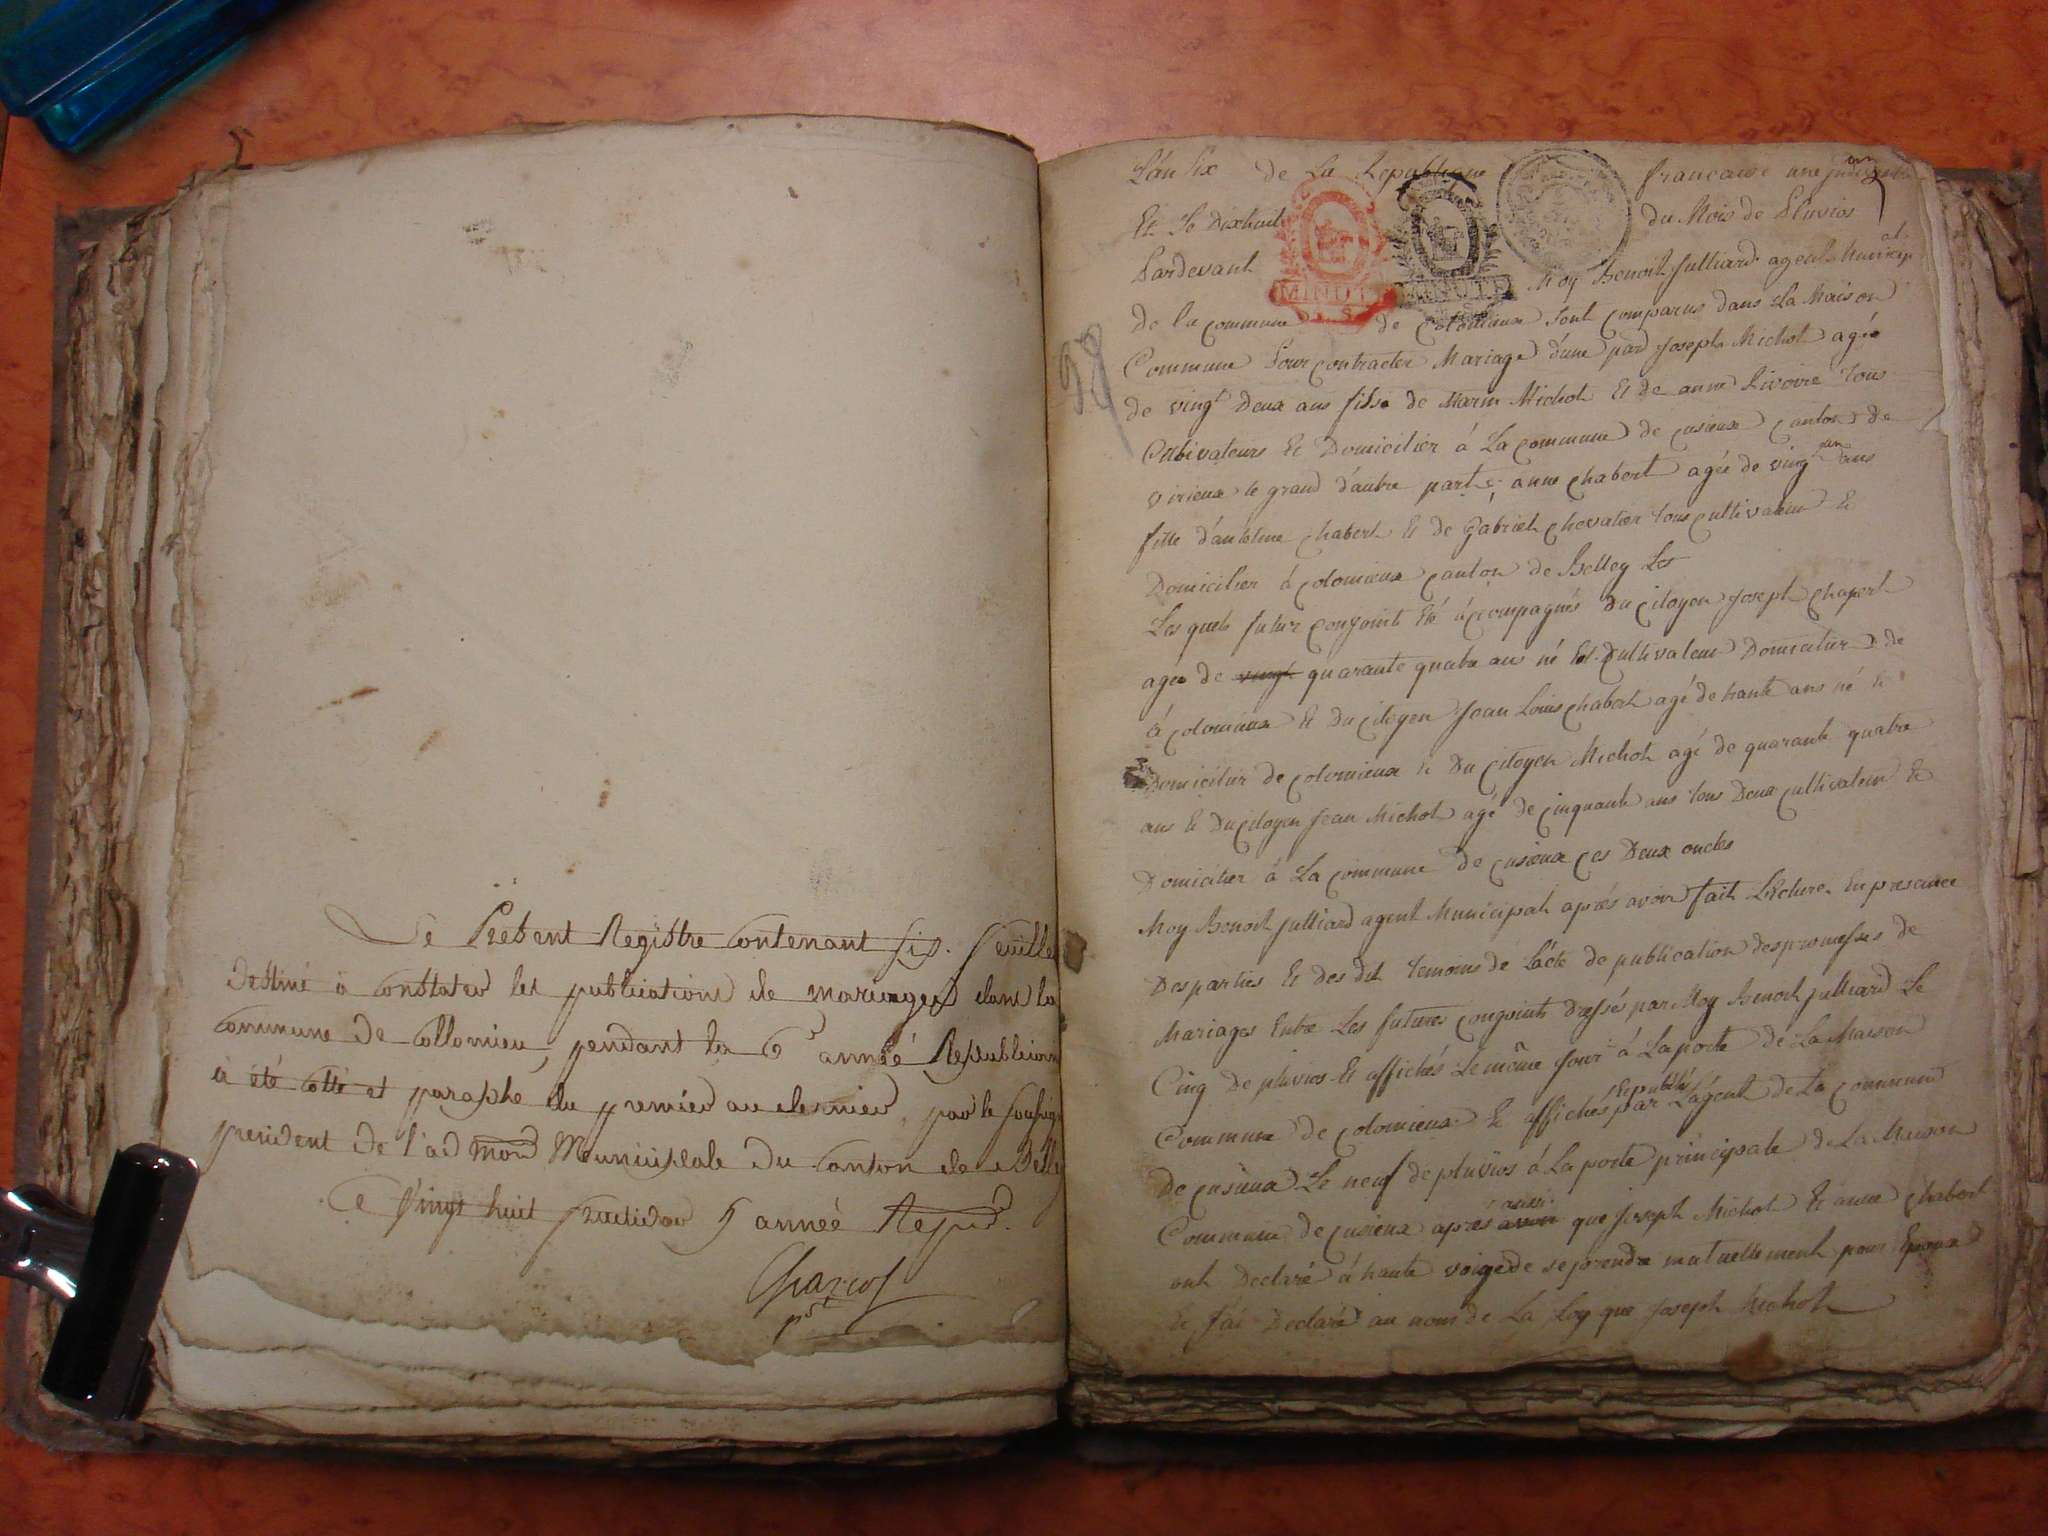 Le Présent Registre contenant six feuilles
destiné à constater les publications de mariages dans la
commune de Collomieu, pendant la 6e année Republicaine
à été cotté et paraphé du premier au dernier, par le soussigné
president de l'admon Municipale du canton de Belley
Ce vingt huit fructidor 5 année Repub.
Charcot
pdt
L'an six de La Republique francaise une indivisible
Et Le Dixhuit du Mois de Pluvios
Pardevant Moy Benoit Julliard agent Municipal
MINUTE
MINUTE
98
De la commune de Colomieux sont comparus dans La Maison
Commune Pour contracter Mariage d'une pard Joseph Michot agée
de vingt Deux ans fils de Marin Michot Et de anne Rivoire tous
Cultivateurs Et Domicilier á La commune de cusieux canton de
virieux le grand d'autre part anne chabert agée de vingt un ans
fille d'antelme chabert Et de Gabriel chevalier tous cultivateur Et
Domicilier á colomieux canton de Belley Les
Les quels futur conjoint Eté accompagnés du citoyen Joseph chabert
agée de vingt quarante quatre ans né Et Cultivateur Domicilier de
á colomieux Et du citoyen Jean Louis chabert agé de trante ans né Et
Domicilier de colomieux Et Du citoyen Michot agé de quarante quatre
ans Et Du citoyen Jean Michot agé de cinquante ans tous Deux cultivateur Et
Domicilier á La commune De cusieux ces Deux oncles
Moy Benoit Julliard agent Municipal aprés avoir fait Lecture En presance
Des parties Et des dit temoins de L'acte de publication des promesses de
Mariages Entre Les futures conjoints dressé par Moy Benoit Julliard Le
Cinq De pluvios Et affichés Le même jour á La porte De La Maison
Commune De colomieux Et affichés Et publié par L'agent de La commune
De cusieux Le neuf de pluvios á La porte principale de La Maison
Commune de cusieux apres avoir aussi que Joseph Michot Et anne chabert
ont Declaré á haute voige de se prendre mutuellement pour Epoux
Et J'ai Declaré au nom de La Loy que Joseph Michot